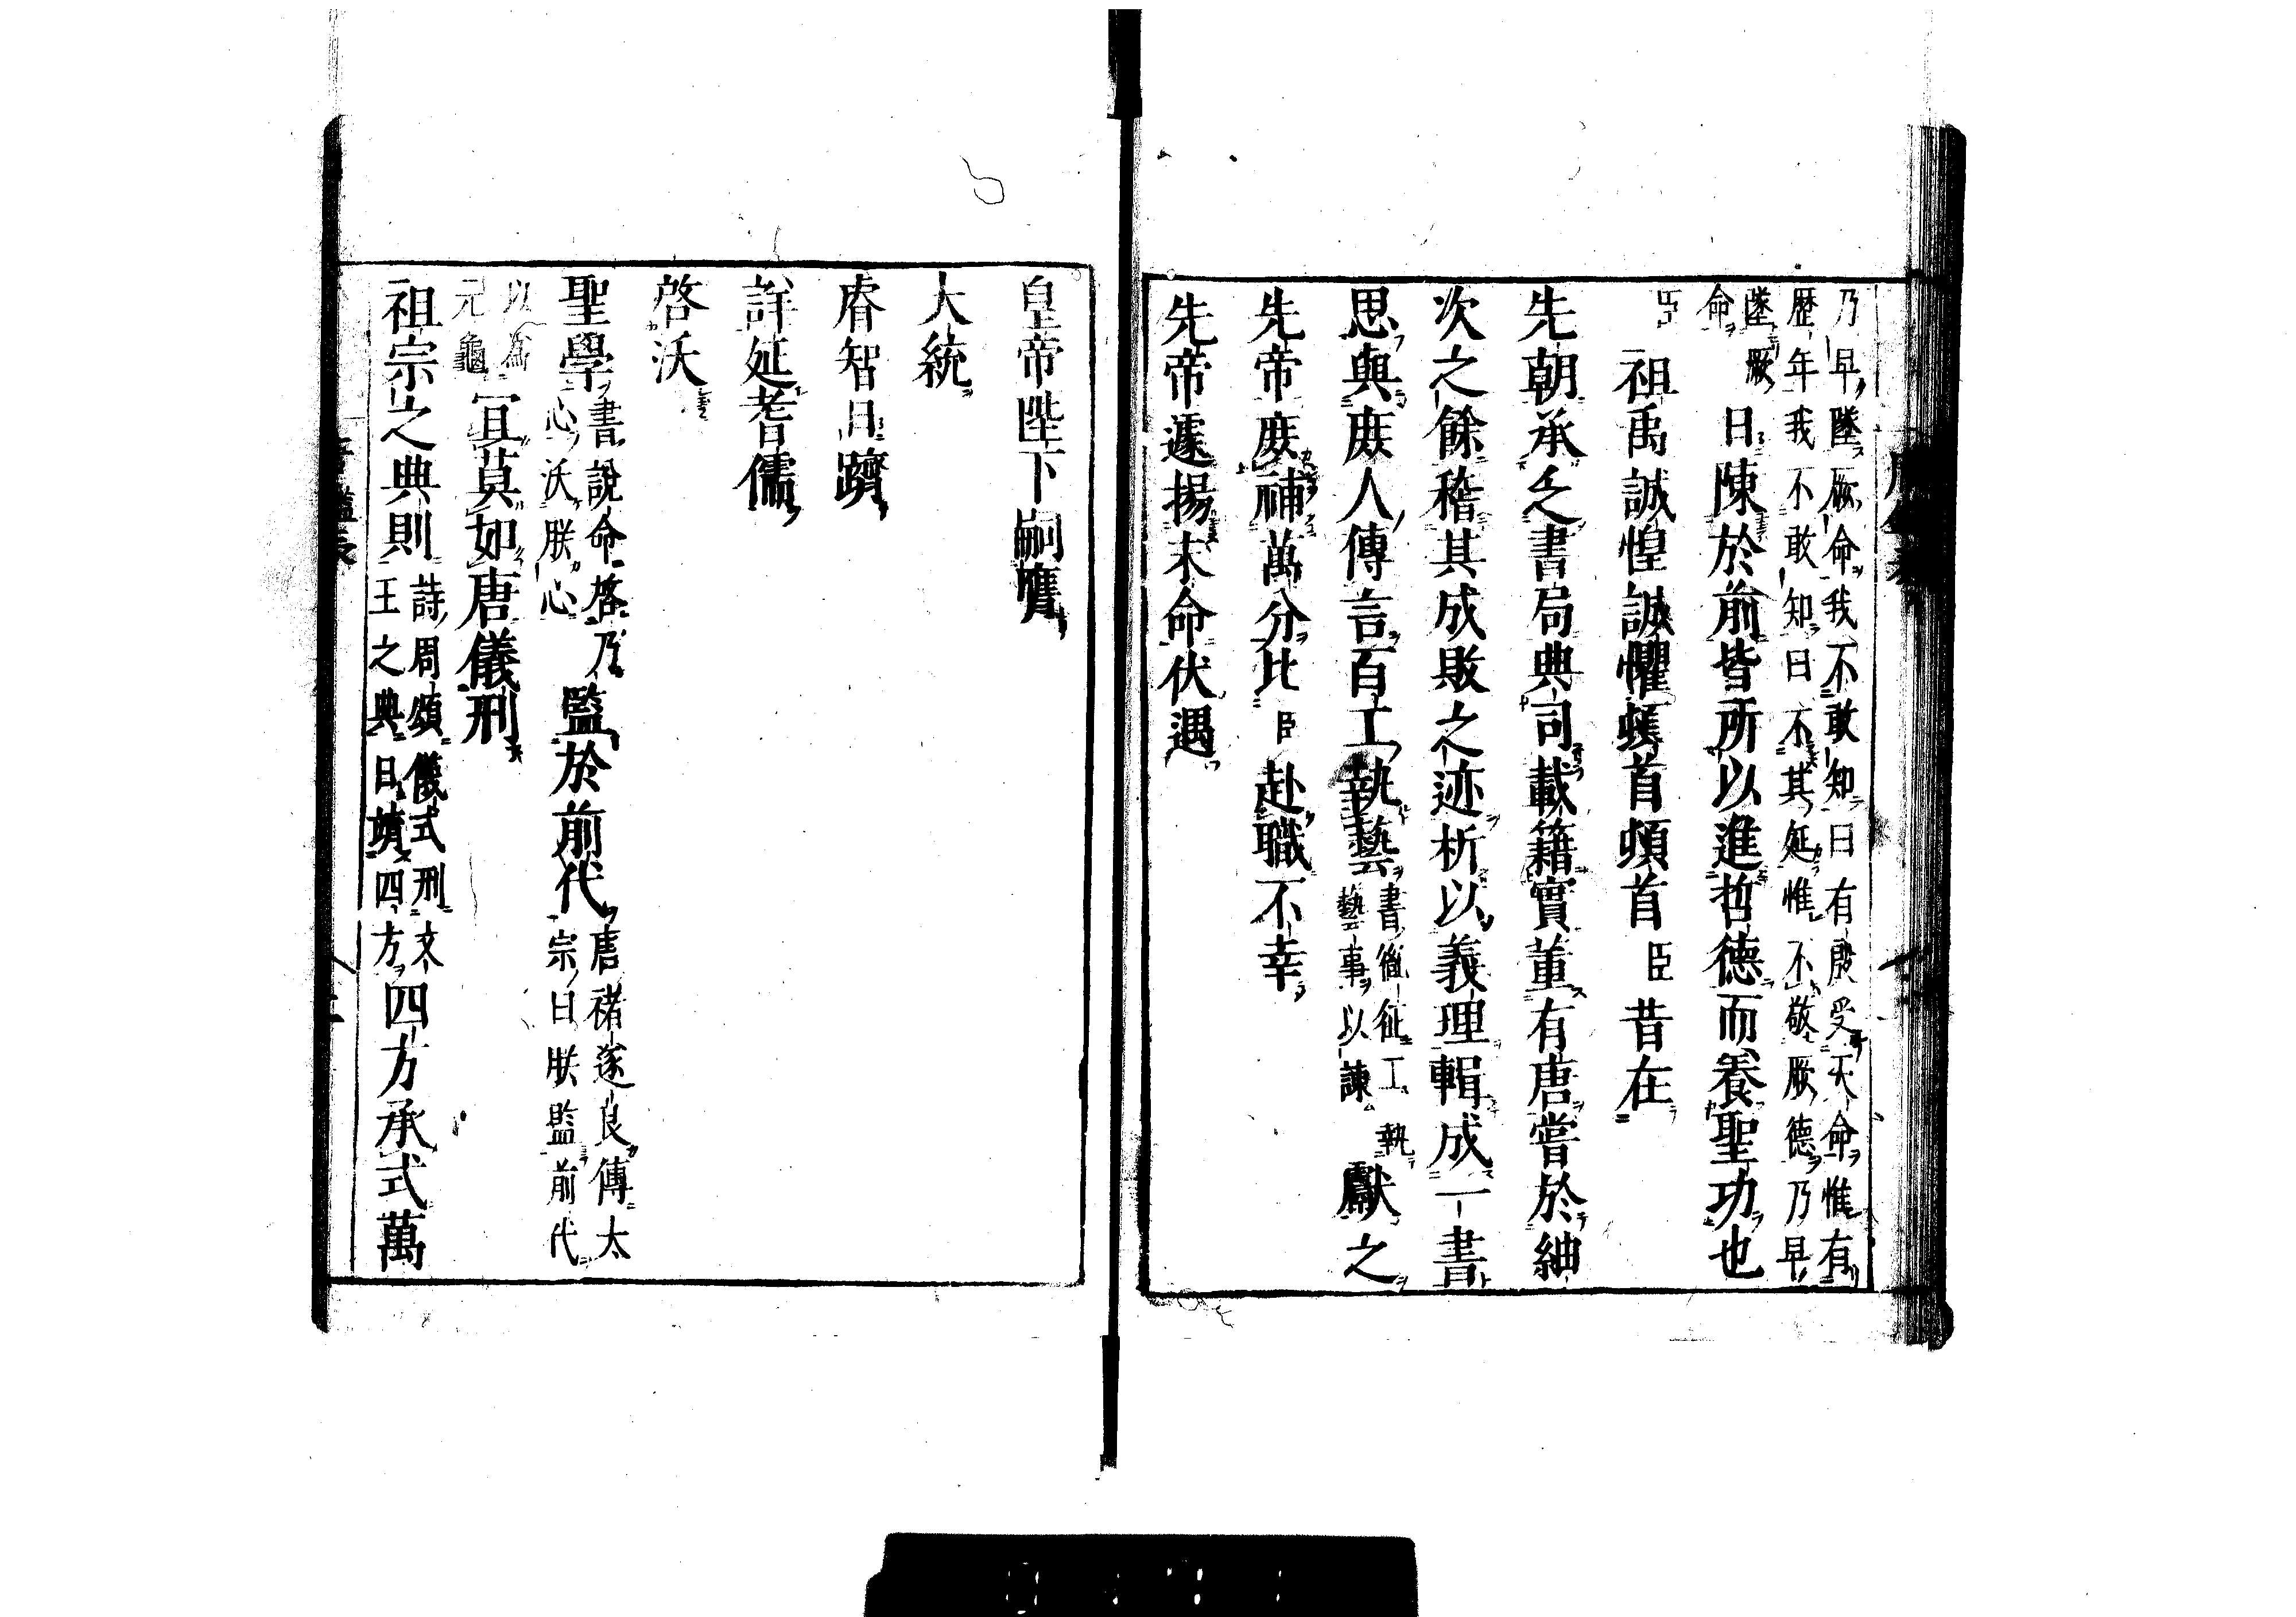 乃早墜厥命我不敢知曰有殷受天命惟有
歷年我不敢知曰不其延惟不敬厥德乃早
墜厥
命
曰陳於前皆所以進哲德而養聖功也
臣
祖禹誠惶誠懼頓首頓首臣昔在
先朝承乏書局典司載籍實董有唐嘗於紬
次之餘稽其成敗之迹析以義理輯成一書
思與庶人傳言百工執藝
書胤征工執
藝事以諫
獻之
先帝庶補萬分比臣赴職不幸
先帝遽揚末命伏遇
皇帝陛下嗣膺
大統
睿智日躋
詳延耆儒
啓沃
聖學
書說命啓乃
心沃朕心
監於前代
唐褚遂良傳太
宗曰朕監前代
以為
元龜
宜莫如唐儀刑
祖宗之典則
詩周頌儀式刑文
王之典日靖四方
四方承式萬